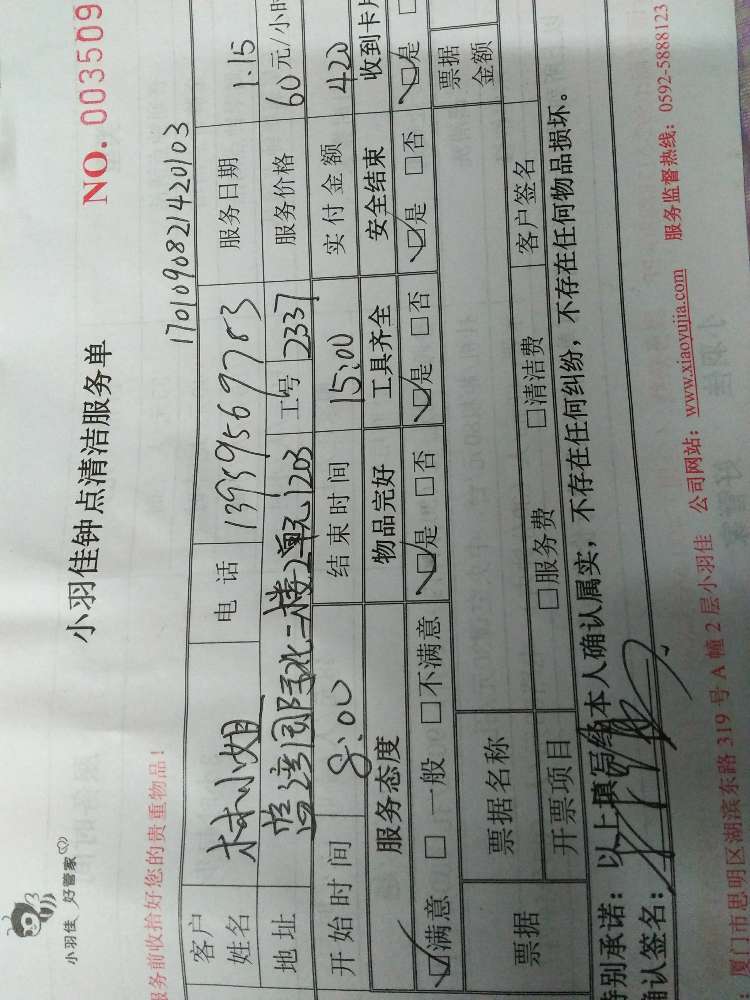 小羽佳 好管家
小羽佳钟点清洁服务单
NO. 003509
服务前收拾好您的贵重物品！
170109082142 0103
客户姓名 林小姐 电话 13959569783 服务日期 1.15
地址 蓝湾国际 楼 单元1203 工号 2337 服务价格 60元/小时
开始时间 8:00 结束时间 15:00 实付金额 420
服务态度 物品完好 工具齐全 安全结束 收到卡片
☑满意 □一般 □不满意 ☑是 □否 ☑是 □否 ☑是 □否 ☑是 □
票据 票据名称 票据金额
开票项目 □服务费 □清洁费 客户签名
特别承诺：以上填写经本人确认属实，不存在任何纠纷，不存在任何物品损坏。
确认签名：
厦门市思明区湖滨东路 319 号 A 幢 2 层小羽佳 公司网站：www.xiaoyujia.com 服务监督热线：0592-5888123